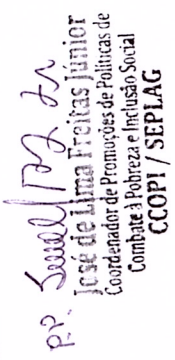 P.P.
José de Lima Freitas Júnior
Coordenador de Promoções de Políticas de
Combate à Pobreza e Inclusão Social
CCOPI / SEPLAG